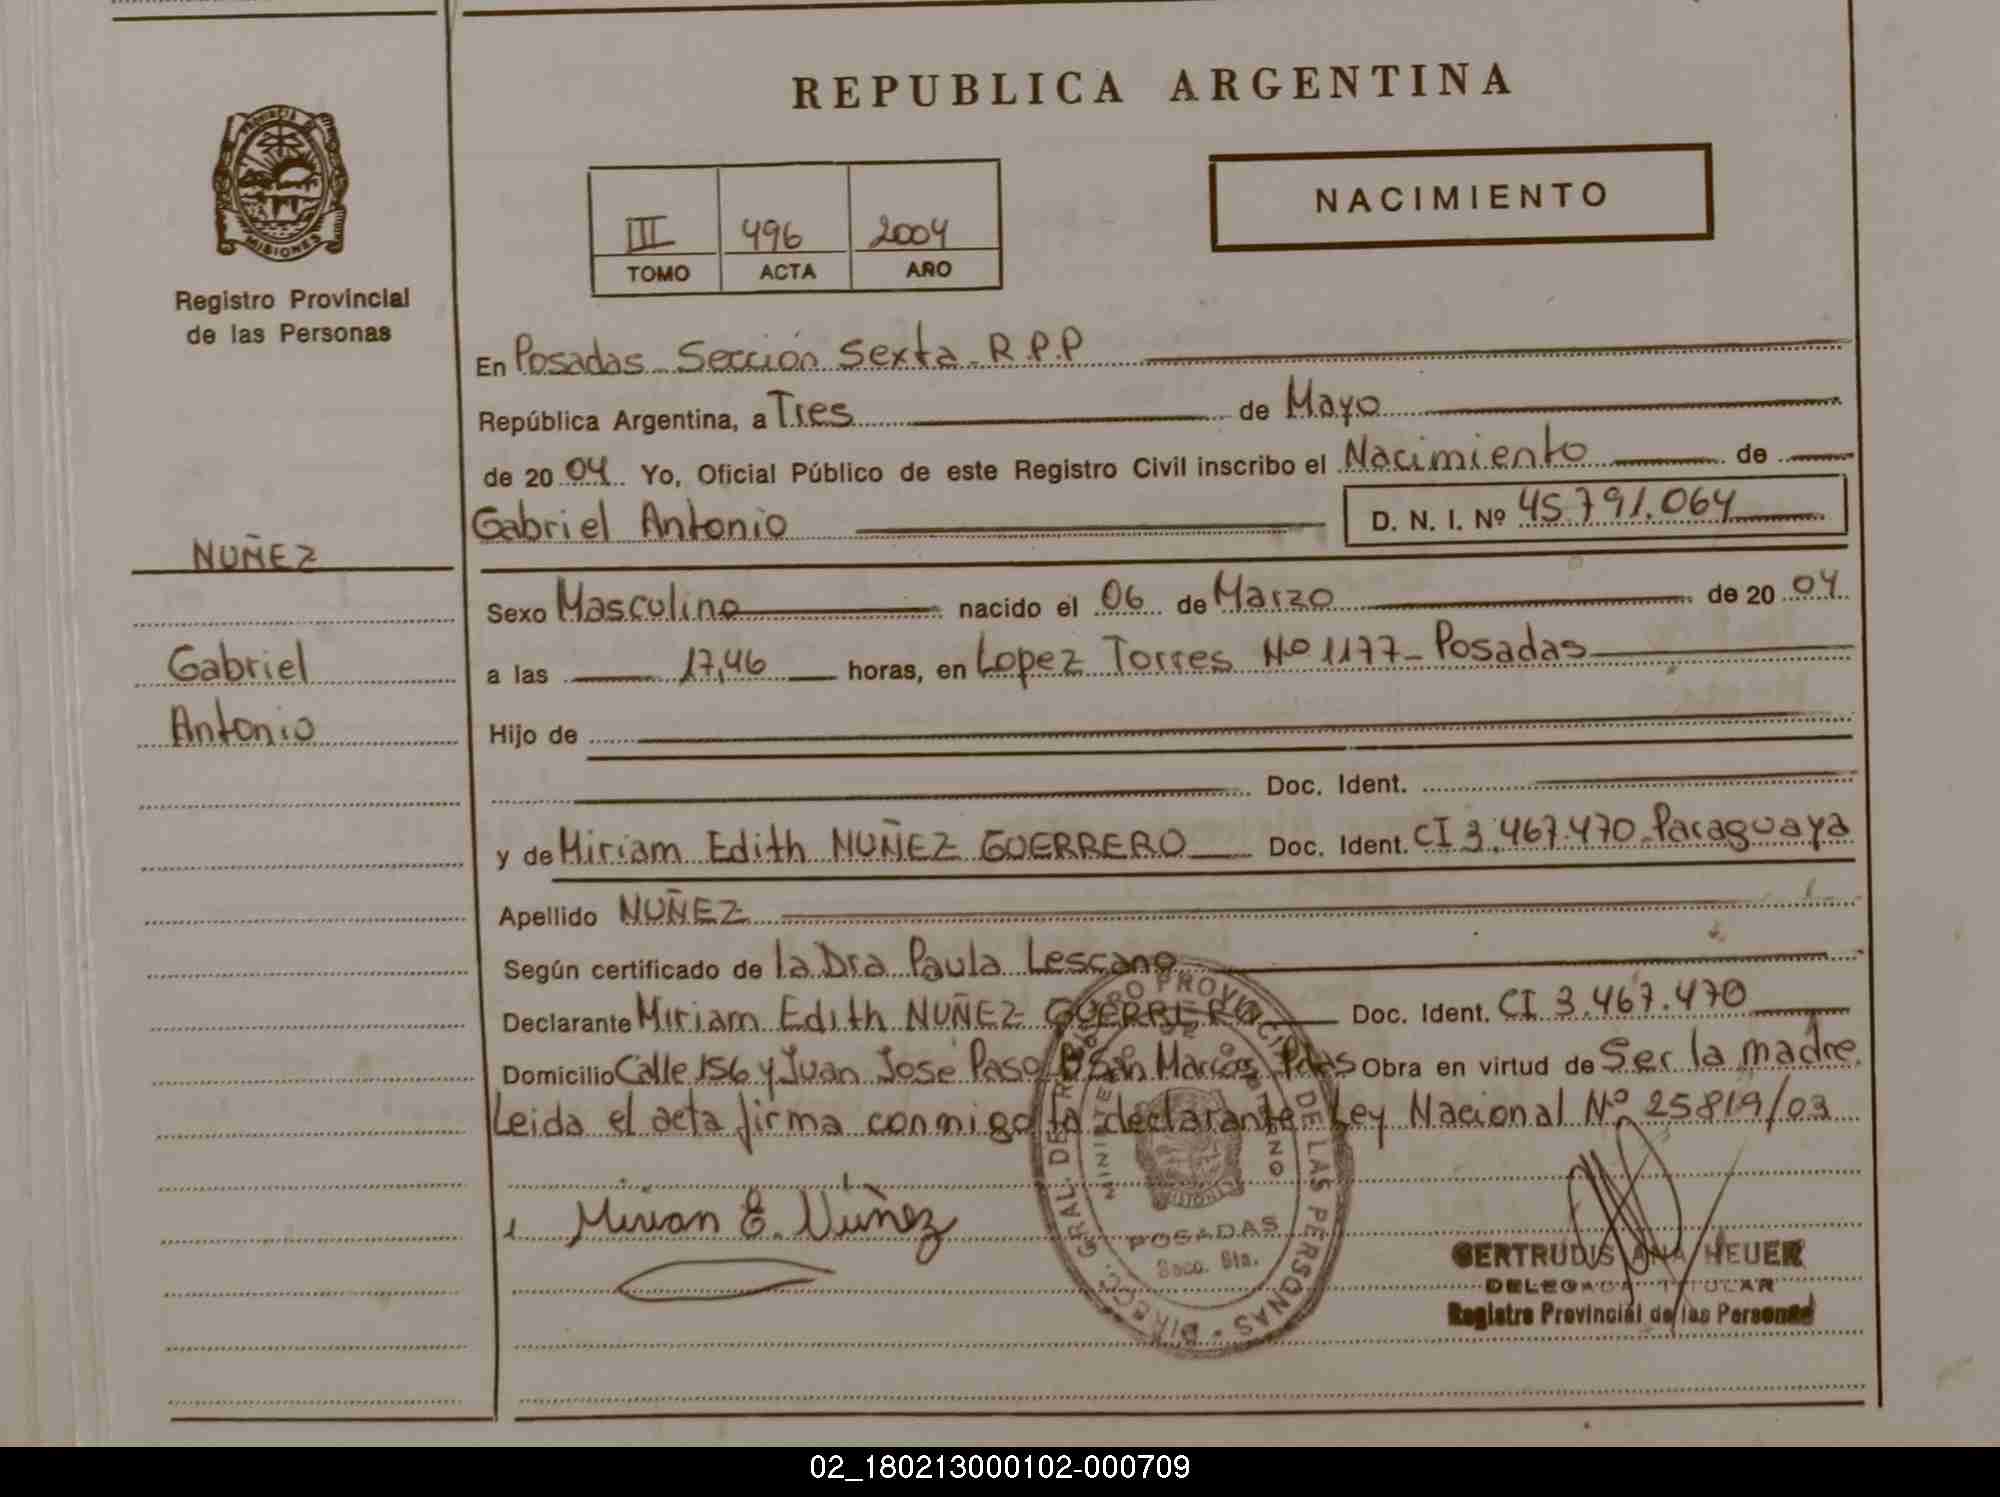 REPUBLICA ARGENTINA
PROVINCIA DE
MISIONES
Registro Provincial
de las Personas
NACIMIENTO
III 496 2004
TOMO ACTA AÑO
En Posadas Sección Sexta R.P.P
República Argentina, a Tres de Mayo
de 20 04 Yo, Oficial Público de este Registro Civil inscribo el Nacimiento de
Gabriel Antonio D. N. I. Nº 45.791.064
NUÑEZ
Gabriel
Antonio
Sexo Masculino nacido el 06 de Marzo de 20 04
a las 17,46 horas, en Lopez Torres Nº 1177 - Posadas
Hijo de
Doc. Ident.
y de Miriam Edith NUÑEZ GUERRERO Doc. Ident. CI 3.467.470 Paraguaya
Apellido NUÑEZ
Según certificado de la Dra Paula Lescano
Declarante Miriam Edith NUÑEZ GUERRERO Doc. Ident. CI 3.467.470
Domicilio Calle 156 y Juan José Paso Bº San Marcos Pdas Obra en virtud de Ser la madre.
Leida el acta firma conmigo la declarante Ley Nacional Nº 25819/03
Mirian E. Núñez
DIREC. GRAL. DEL REGISTRO PROVINCIAL DE LAS PERSONAS
POSADAS
Secc. 6ta.
GERTRUDIS ANA HEUER
DELEGADA TITULAR
Registro Provincial de las Personas
02_180213000102-000709